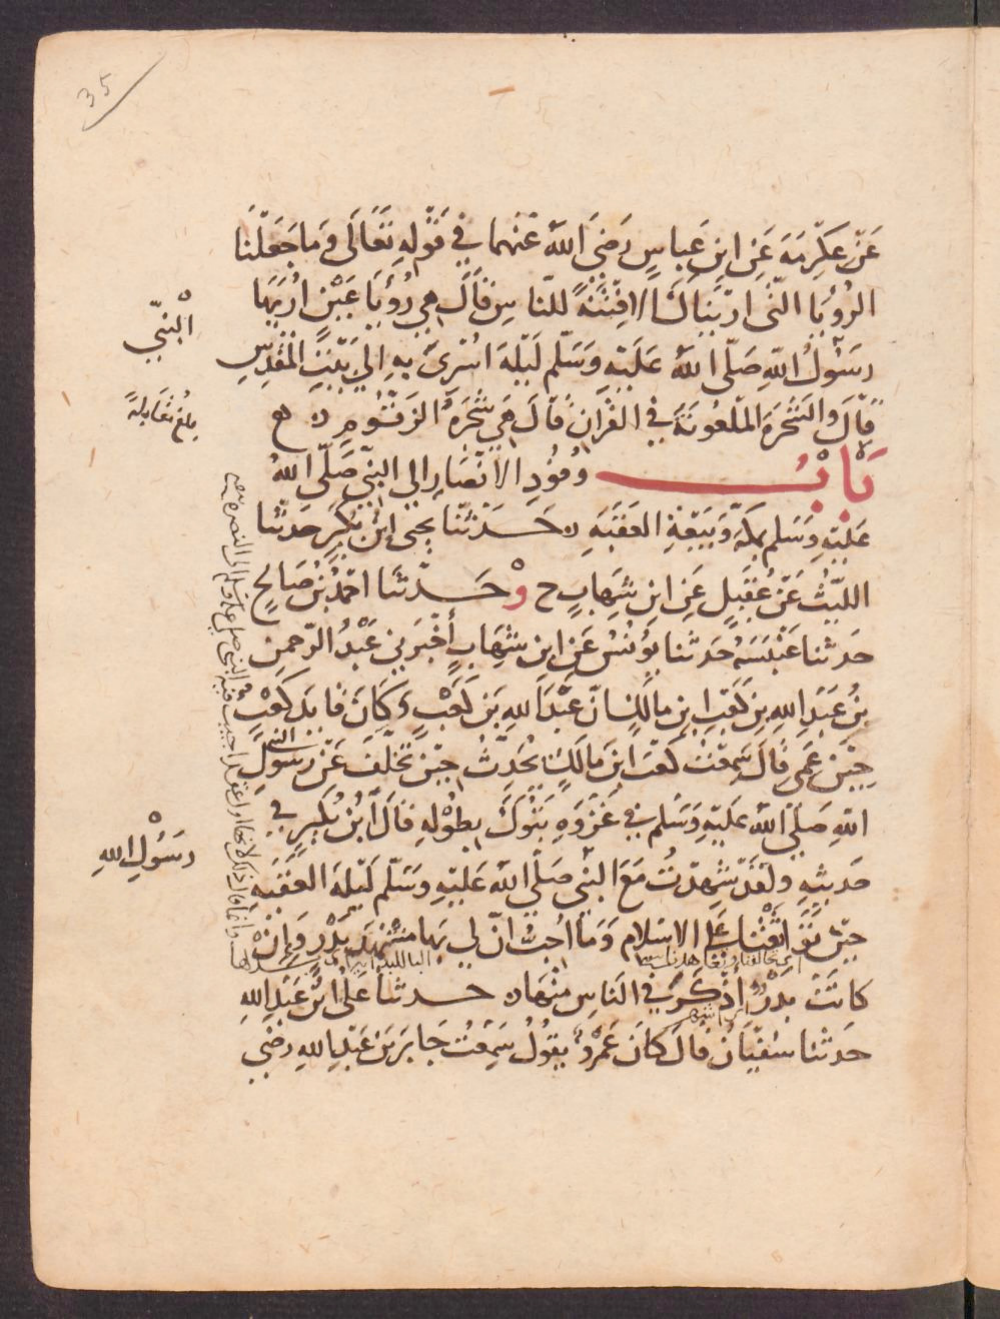 35
عَنْ عِكْرِمَةَ عَنِ ابنِ عَباسٍ رَضيَ اللهُ عَنْهما في قَوْلِهِ تَعَالَى وَمَا جَعَلْنَا
الرُؤْيَا الَّتى اَرَيْنَاكَ الا فِتْنَةً للنّاسِ قَالَ هِي رُؤْيَا عَيْنٍ اُرِيَهَا
رسَوُلُ اللهِ صَلّى اللهُ عَلَيْهِ وَسَلّم لَيْلَةَ اُسْرِىَ بهِ الي بَيْتِ المَقْدِسِ
قَالَ وَالشَجَرَةَ المَلْعُونَةَ في القُرْآنِ قَالَ هَي شَجَرَةُ الزَقُّومِ
بَابُ وفُوُدِ الاَنْصَارِ الي النبّي صَلّى اللهُ
عَليْهِ وَسَلم بمكّةَ وَبَيْعَةِ العَقَبَةِ حَدثنَا يحيى ابْنُ بُكَيْرٍ حَدثنَا
الليْثُ عَنْ عُقَيلٍ عَنِ ابنِ شِهابٍ ح وحَدثنَا احْمَدُ بْنُ صَالحٍ
حَدثنا عَنْبَسَةُ حَدثنا يُونسُ عَنِ ابنِ شِهَابٍ أَخْبَرَني عَبْدُ الرّحمنِ
بنُ عَبْدِ اللهِ بنِ كَعْبِ ابنِ مالِكٍ انّ عَبْدَ اللهِ بنَ كَعْبٍ وَكَانَ قَايدَ كَعْبٍ
حِيْنَ عَمِيَ قالَ سَمِعْتُ كَعْبَ ابْنَ مَالكٍ يُحَدِّثُ حِيْنَ تَخَلّفَ عَنْ رَسُولِ
النبي
اللهِ صَلّى اللهُ عَليْهِ وَسَلم في غَزْوَةِ تَبُوكَ بِطُوْلهِ قَالَ ابْنُ بُكَيرٍ في
حَديثهِ وَلقَدْ شَهِدْتُ مَعَ النبّي صَلّى اللهُ عَليْهِ وسَلّم لَيْلَةَ العَقَبَةِ
حِيْنَ تَوَاثَقْنَا عَلى الاسْلام وَمَا اُحبُّ انّ لي بهَا مَشْهَدَ بَدْرٍ وَإِنْ
كانَتْ بدْرٌ أَذْكَرَ في النَاسِ مِنْهَا حدثنا عَلىُ ابْنُ عَبْدِ اللهِ
حَدثنا سُفيَانُ قالَ كانَ عَمْرٌو يقُولُ سَمِعْتُ جَابرَ بنَ عَبْدِ اللهِ رضَي
النبّي
بلغ مقابلة
رسَوُلِ اللهِ